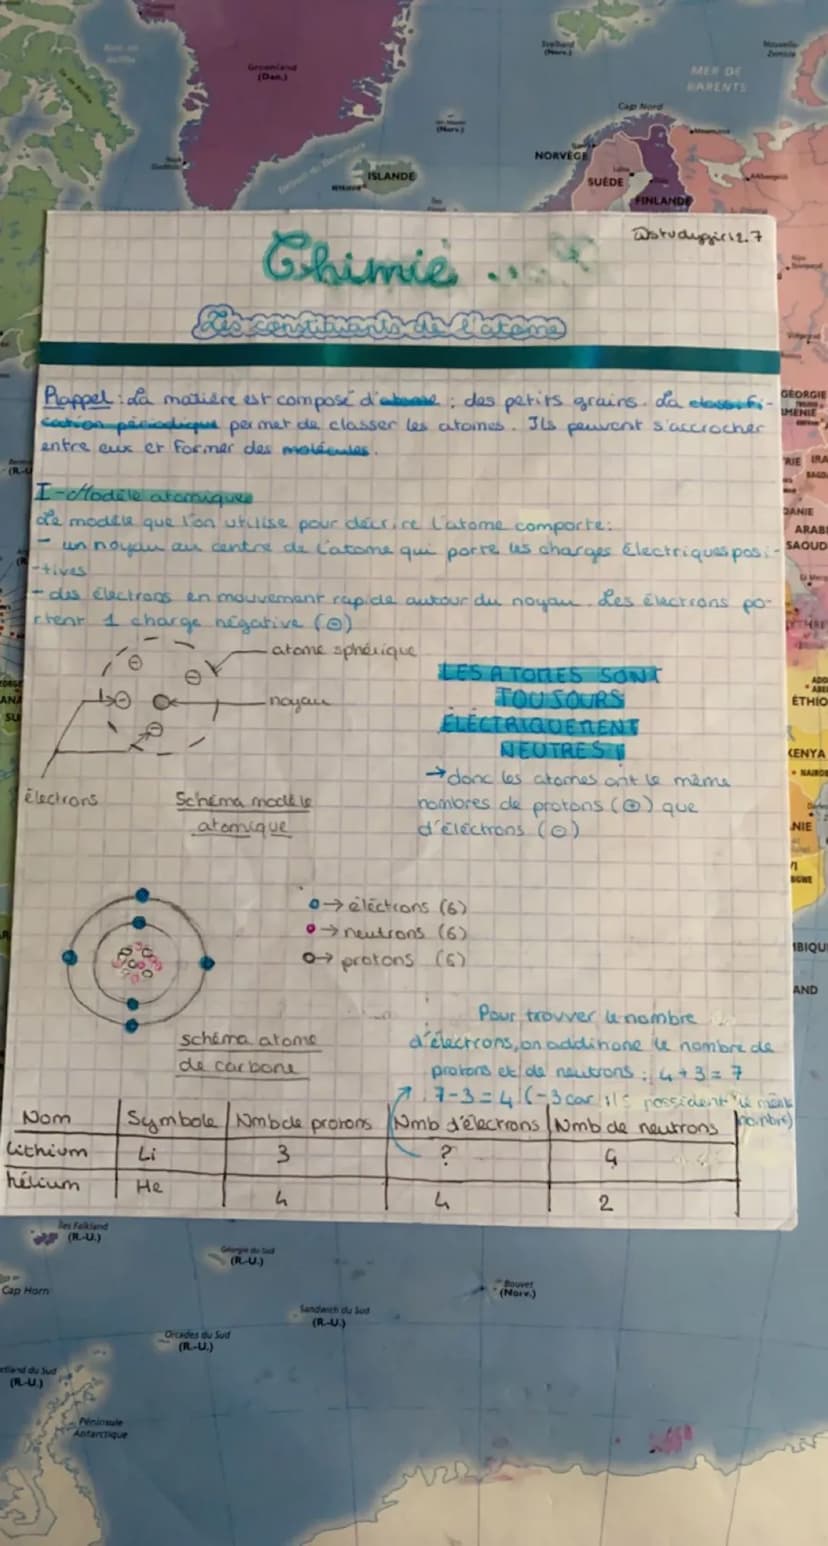 Groenland
(Dan.)
MER DE
BARENTS
Cap Nord
(Norv.)
ISLANDE
NORVÈGE
SUÈDE
FINLANDE
@studygirl2.7
Chimie ...
Les constituants de l'atome
Rappel : La matière est composé d'atome : des petits grains. La classifi-
cation périodique permet de classer les atomes. Ils peuvent s'accrocher
entre eux et former des molécules.
I - Modèle atomiques
Le modèle que l'on utilise pour décrire l'atome comporte:
- un noyau au centre de l'atome qui porte les charges électriques posi-
-tives
- des électrons en mouvement rapide autour du noyau. Les électrons po-
rtent 1 charge négative (⊖)
atome sphérique
noyau
électrons
Schéma modèle
atomique
LES ATOMES SONT
TOUJOURS
ÉLECTRIQUEMENT
NEUTRES !
→ donc les atomes ont le même
nombres de protons (⊕) que
d'éléctrons (⊖)
→ éléctrons (6)
→ neutrons (6)
→ protons (6)
schéma atome
de carbone
Pour trouver le nombre
d'électrons, on additione le nombre de
protons et de neutrons : 4 + 3 = 7
7 - 3 = 4 (-3 car ils possèdent le même
nombre)
Nom Symbole Nmb de protons Nmb d'électrons Nmb de neutrons
Lithium Li 3 ? 4
hélium He 4 4 2
GÉORGIE
DANIE
ARABI
SAOUD
ÉTHIO
KENYA
NIE
BIQU
AND
Îles Falkland
(R.-U.)
Géorgie du Sud
(R.-U.)
Cap Horn
Bouvet
(Norv.)
Sandwich du Sud
(R.-U.)
Orcades du Sud
(R.-U.)
(R.-U.)
Péninsule
Antarctique